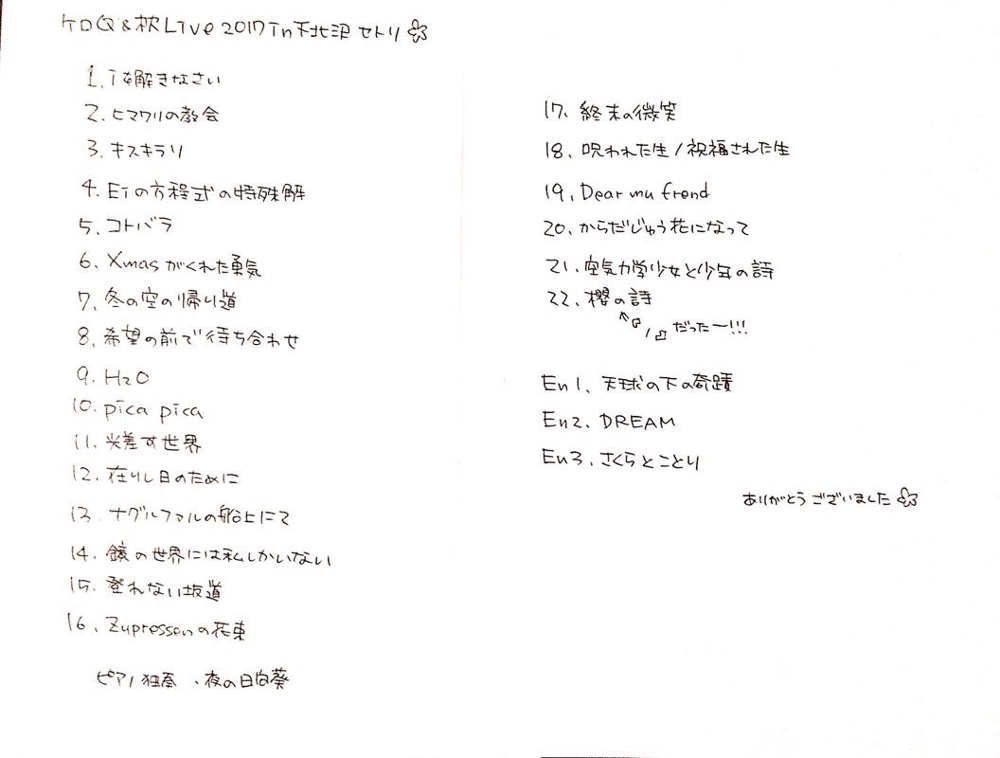 ケロQ&枕Live 2017 in下北沢 セトリ
1. iを解きなさい
2. ヒマワリの教会
3. キスキラリ
4. Eiの方程式の特殊解
5. コトバラ
6. Xmasがくれた勇気
7. 冬の空の帰り道
8. 希望の前で待ち合わせ
9. H2O
10. pica pica
11. 光差す世界
12. 在りし日のために
13. ナグルファルの船上にて
14. 鏡の世界には私しかいない
15. 登れない坂道
16. Zypressenの花束
ピアノ独奏 、夜の日向葵
17. 終末の微笑
18. 呪われた生/祝福された生
19. Dear my frend
20. からだじゅう花になって
21. 空気力学少女と少年の詩
22. 櫻の詩
だったー!!!
En1、天球の下の奇蹟
En2. DREAM
En3. さくらとことり
ありがとうございました